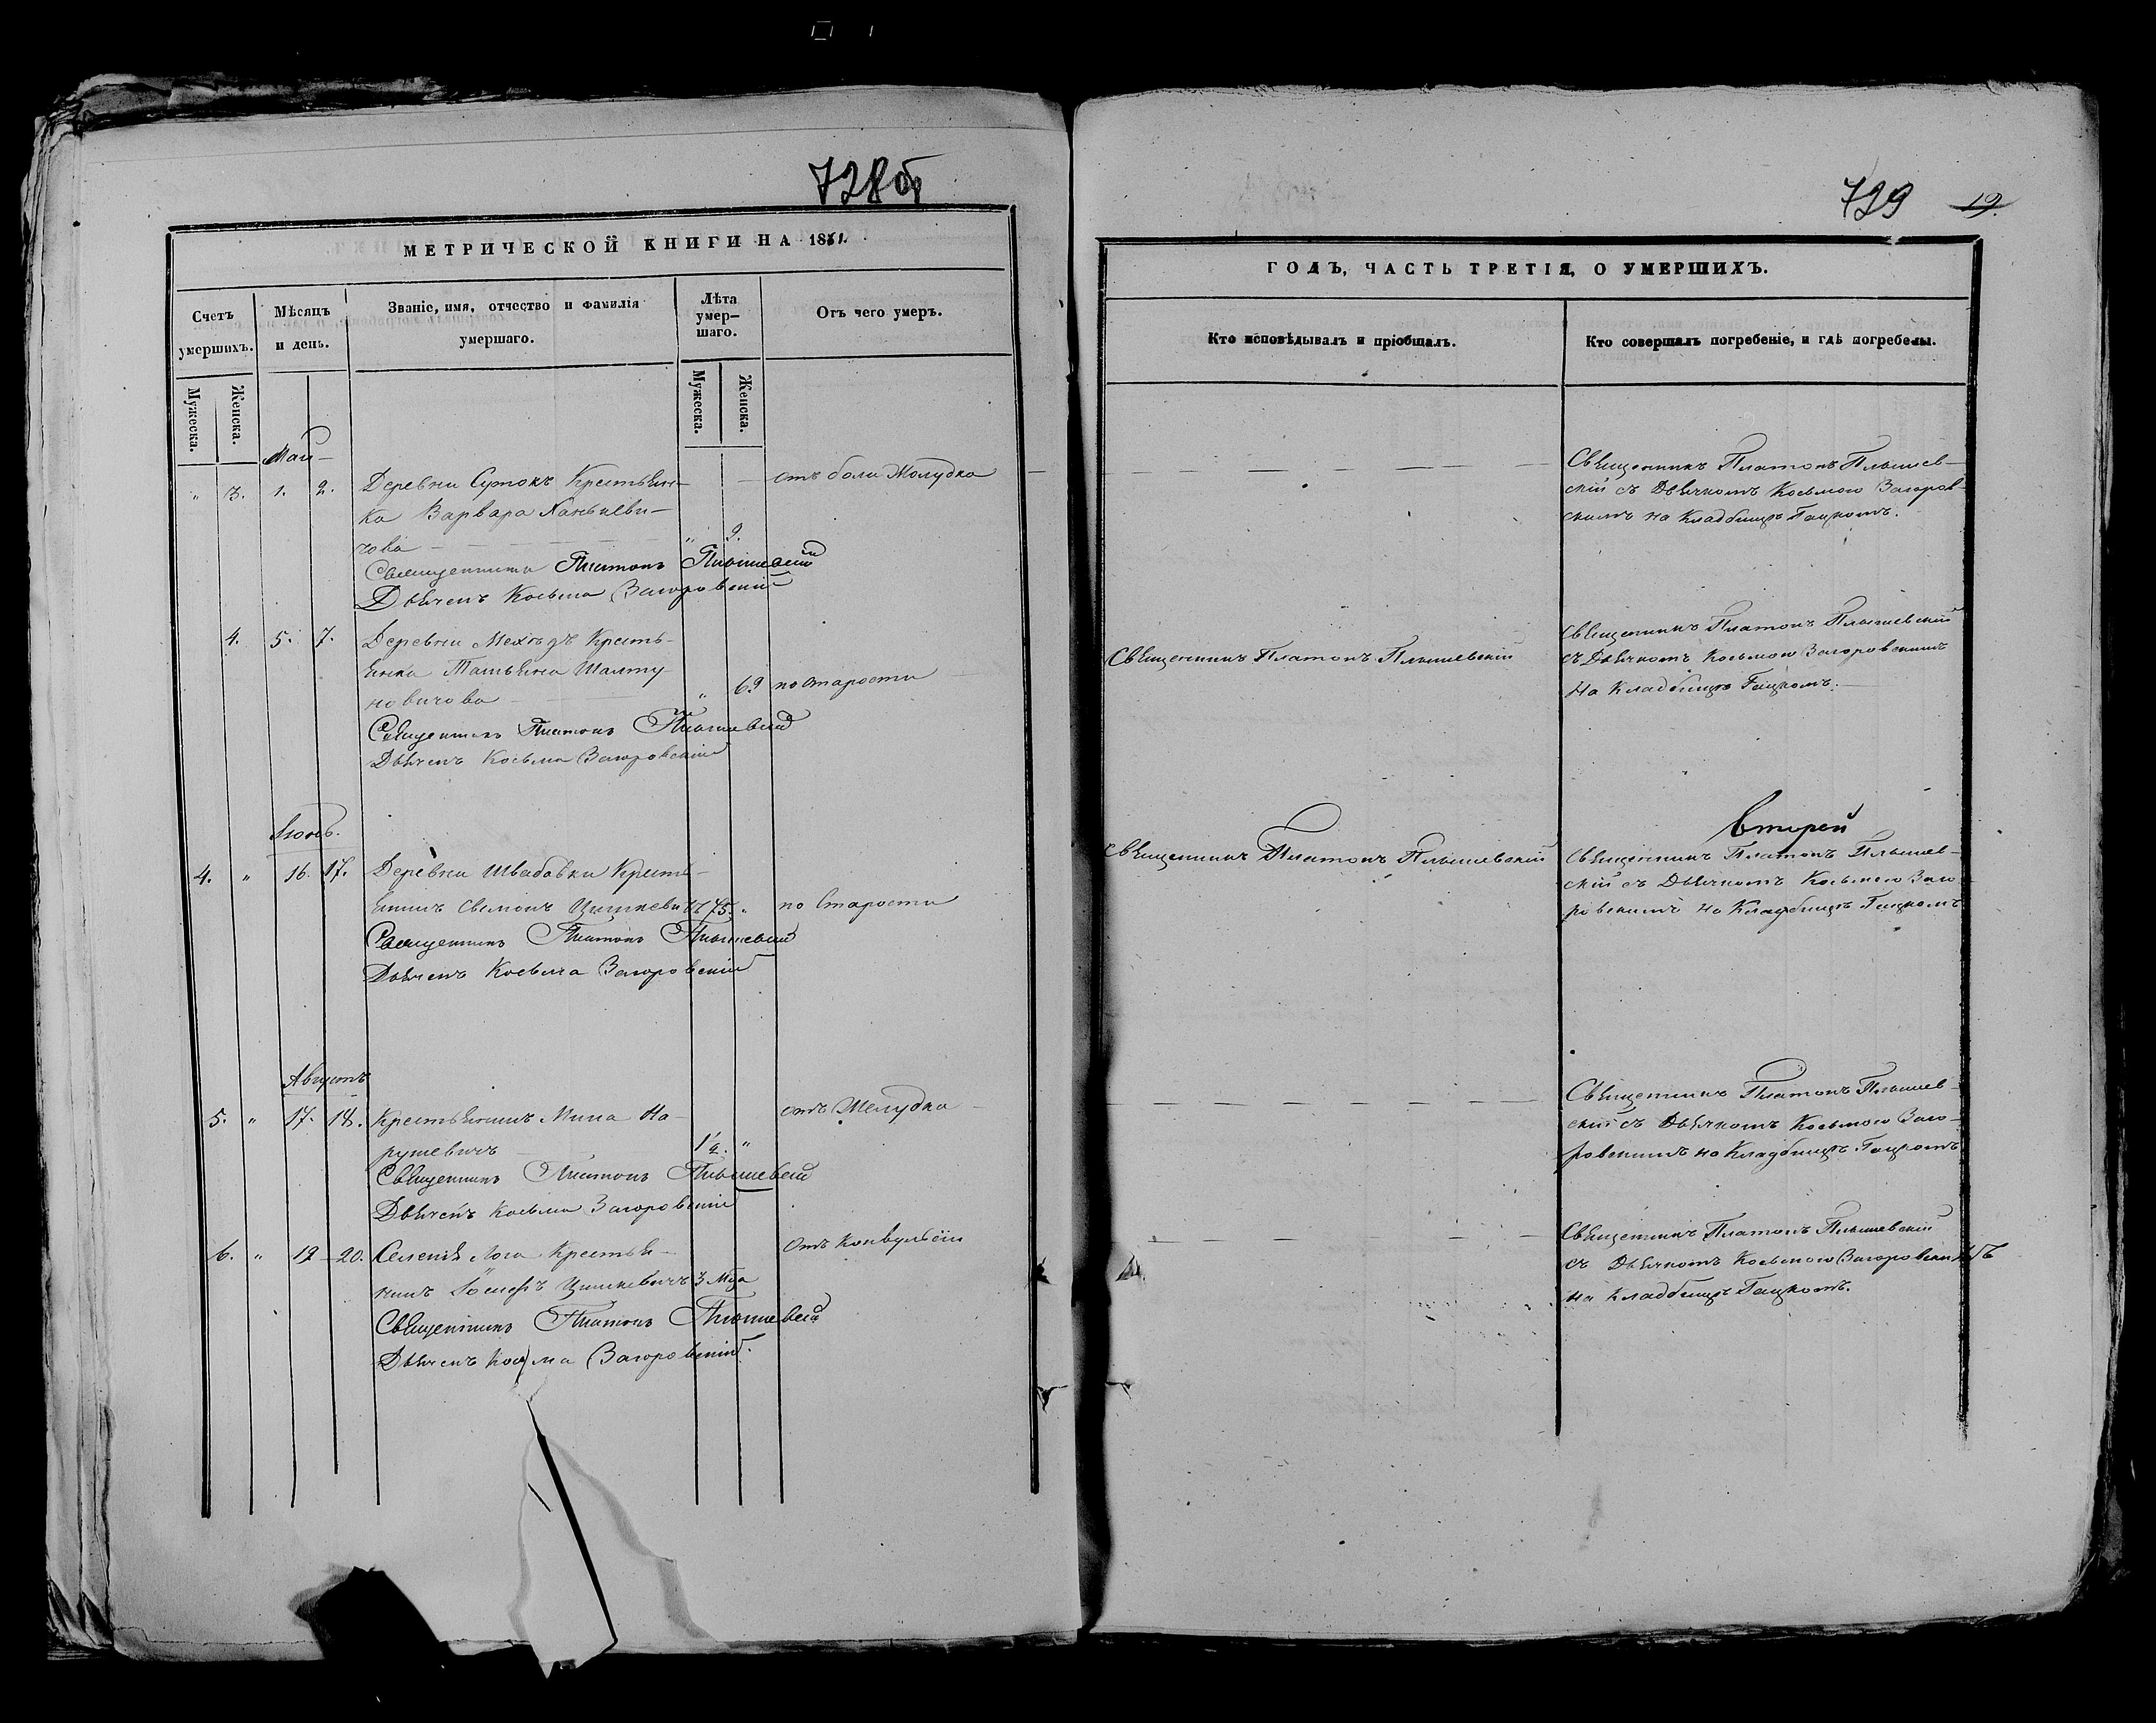 728об
МЕТРИЧЕСКОЙ КНИГИ НА 1861.
Счетъ умершихъ.
Мѣсяцъ и день.
Званіе, имя, отчество и фамилія умершаго.
Лѣта умер-шаго.
Отъ чего умеръ.
Мужеска.
Женска.
Мужеска.
Женска.
Май
" 3. 1. 2. Деревни Крестьян- отъ боли Жолудка
ка Варвара
чова " 2.
Священникъ Платонъ Плышевскій
Дьячекъ Косьма Загоровскій
4. 5. 7. Деревни Крестья-
янка Татьяна Шалту
новичова " 69 по старости
Священникъ Платонъ Плышевскій
Дьячекъ Косьма Загоровскій
Іюнь.
4. " 16. 17. Деревни Швабовки Кресть-
янинъ Симонъ Цишкевичъ 75. " по Старости
Священникъ Платонъ Плышевскій
Дьячекъ Косьма Загоровскій
Августъ
5. " 17. 18. Крестьянинъ Мина На- отъ Желудка
рушевичъ 1½. "
Священникъ Платонъ Плышевскій
Дьячекъ Косьма Загоровскій
6. " 19 20. Селенія Лога Крестья- Отъ Конвульсіи
нинъ Іосифъ Цишкевичъ 3 мца
Священникъ Платонъ Плышевскій
Дьячекъ Косма Загоровскій.
729 19.
ГОДЪ, ЧАСТЬ ТРЕТІЯ, О УМЕРШИХЪ.
Кто исповѣдывалъ и пріобщалъ.
Кто совершалъ погребеніе, и гдѣ погребены.
Священникъ Платонъ Плышев-
скій съ Дьячкомъ Косьмою Загоров-
скимъ на Кладбищѣ Гацкомъ.
Священникъ Платонъ Плышевскій
Священникъ Платонъ Плышевскій
съ Дьячкомъ Косьмою Загоровскимъ
на Кладбищѣ Гацкомъ.
Іерей
Священникъ Платонъ Плышевскій
Священникъ Платонъ Плышев-
скій съ Дьячкомъ Косьмою Заго
ровскимъ на Кладбищѣ Гацкомъ
Священникъ Платонъ Плышев-
скій съ Дьячкомъ Косьмою Заго-
ровскимъ на Кладбищѣ Гацкомъ
Священникъ Платонъ Плышевскій
съ Дьячкомъ Косьмою Загоровскимъ
на Кладбищѣ Гацкомъ.